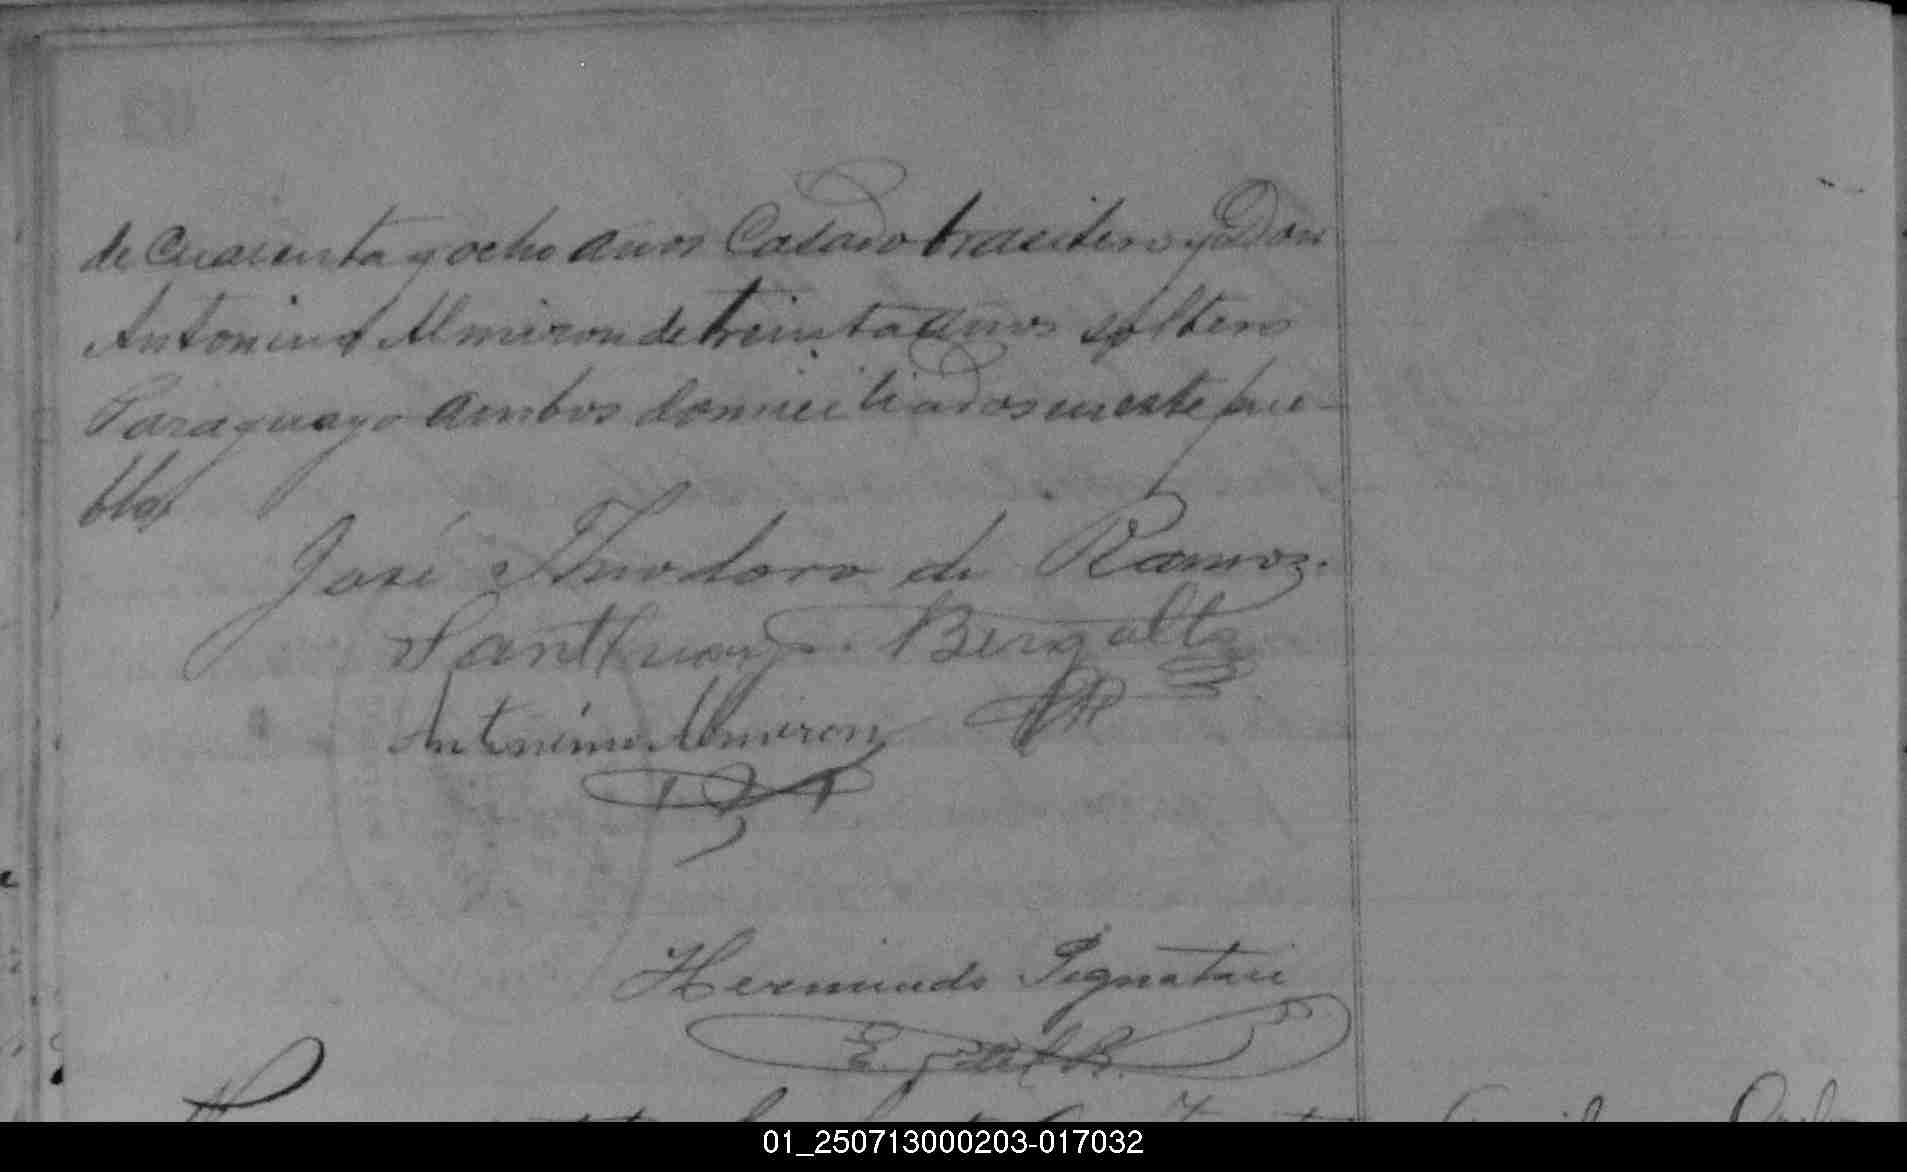 de cuarenta y ocho años Casado brasilero y Don
Antonino Almiron de treinta años soltero
Paraguayo ambos domiciliados en este pue-
blo
José Theodoro de Ramoz.
Santhiago Bergalto
Antonino Almiron
Herminudo Pignatari
E. del R.
01_250713000203-017032